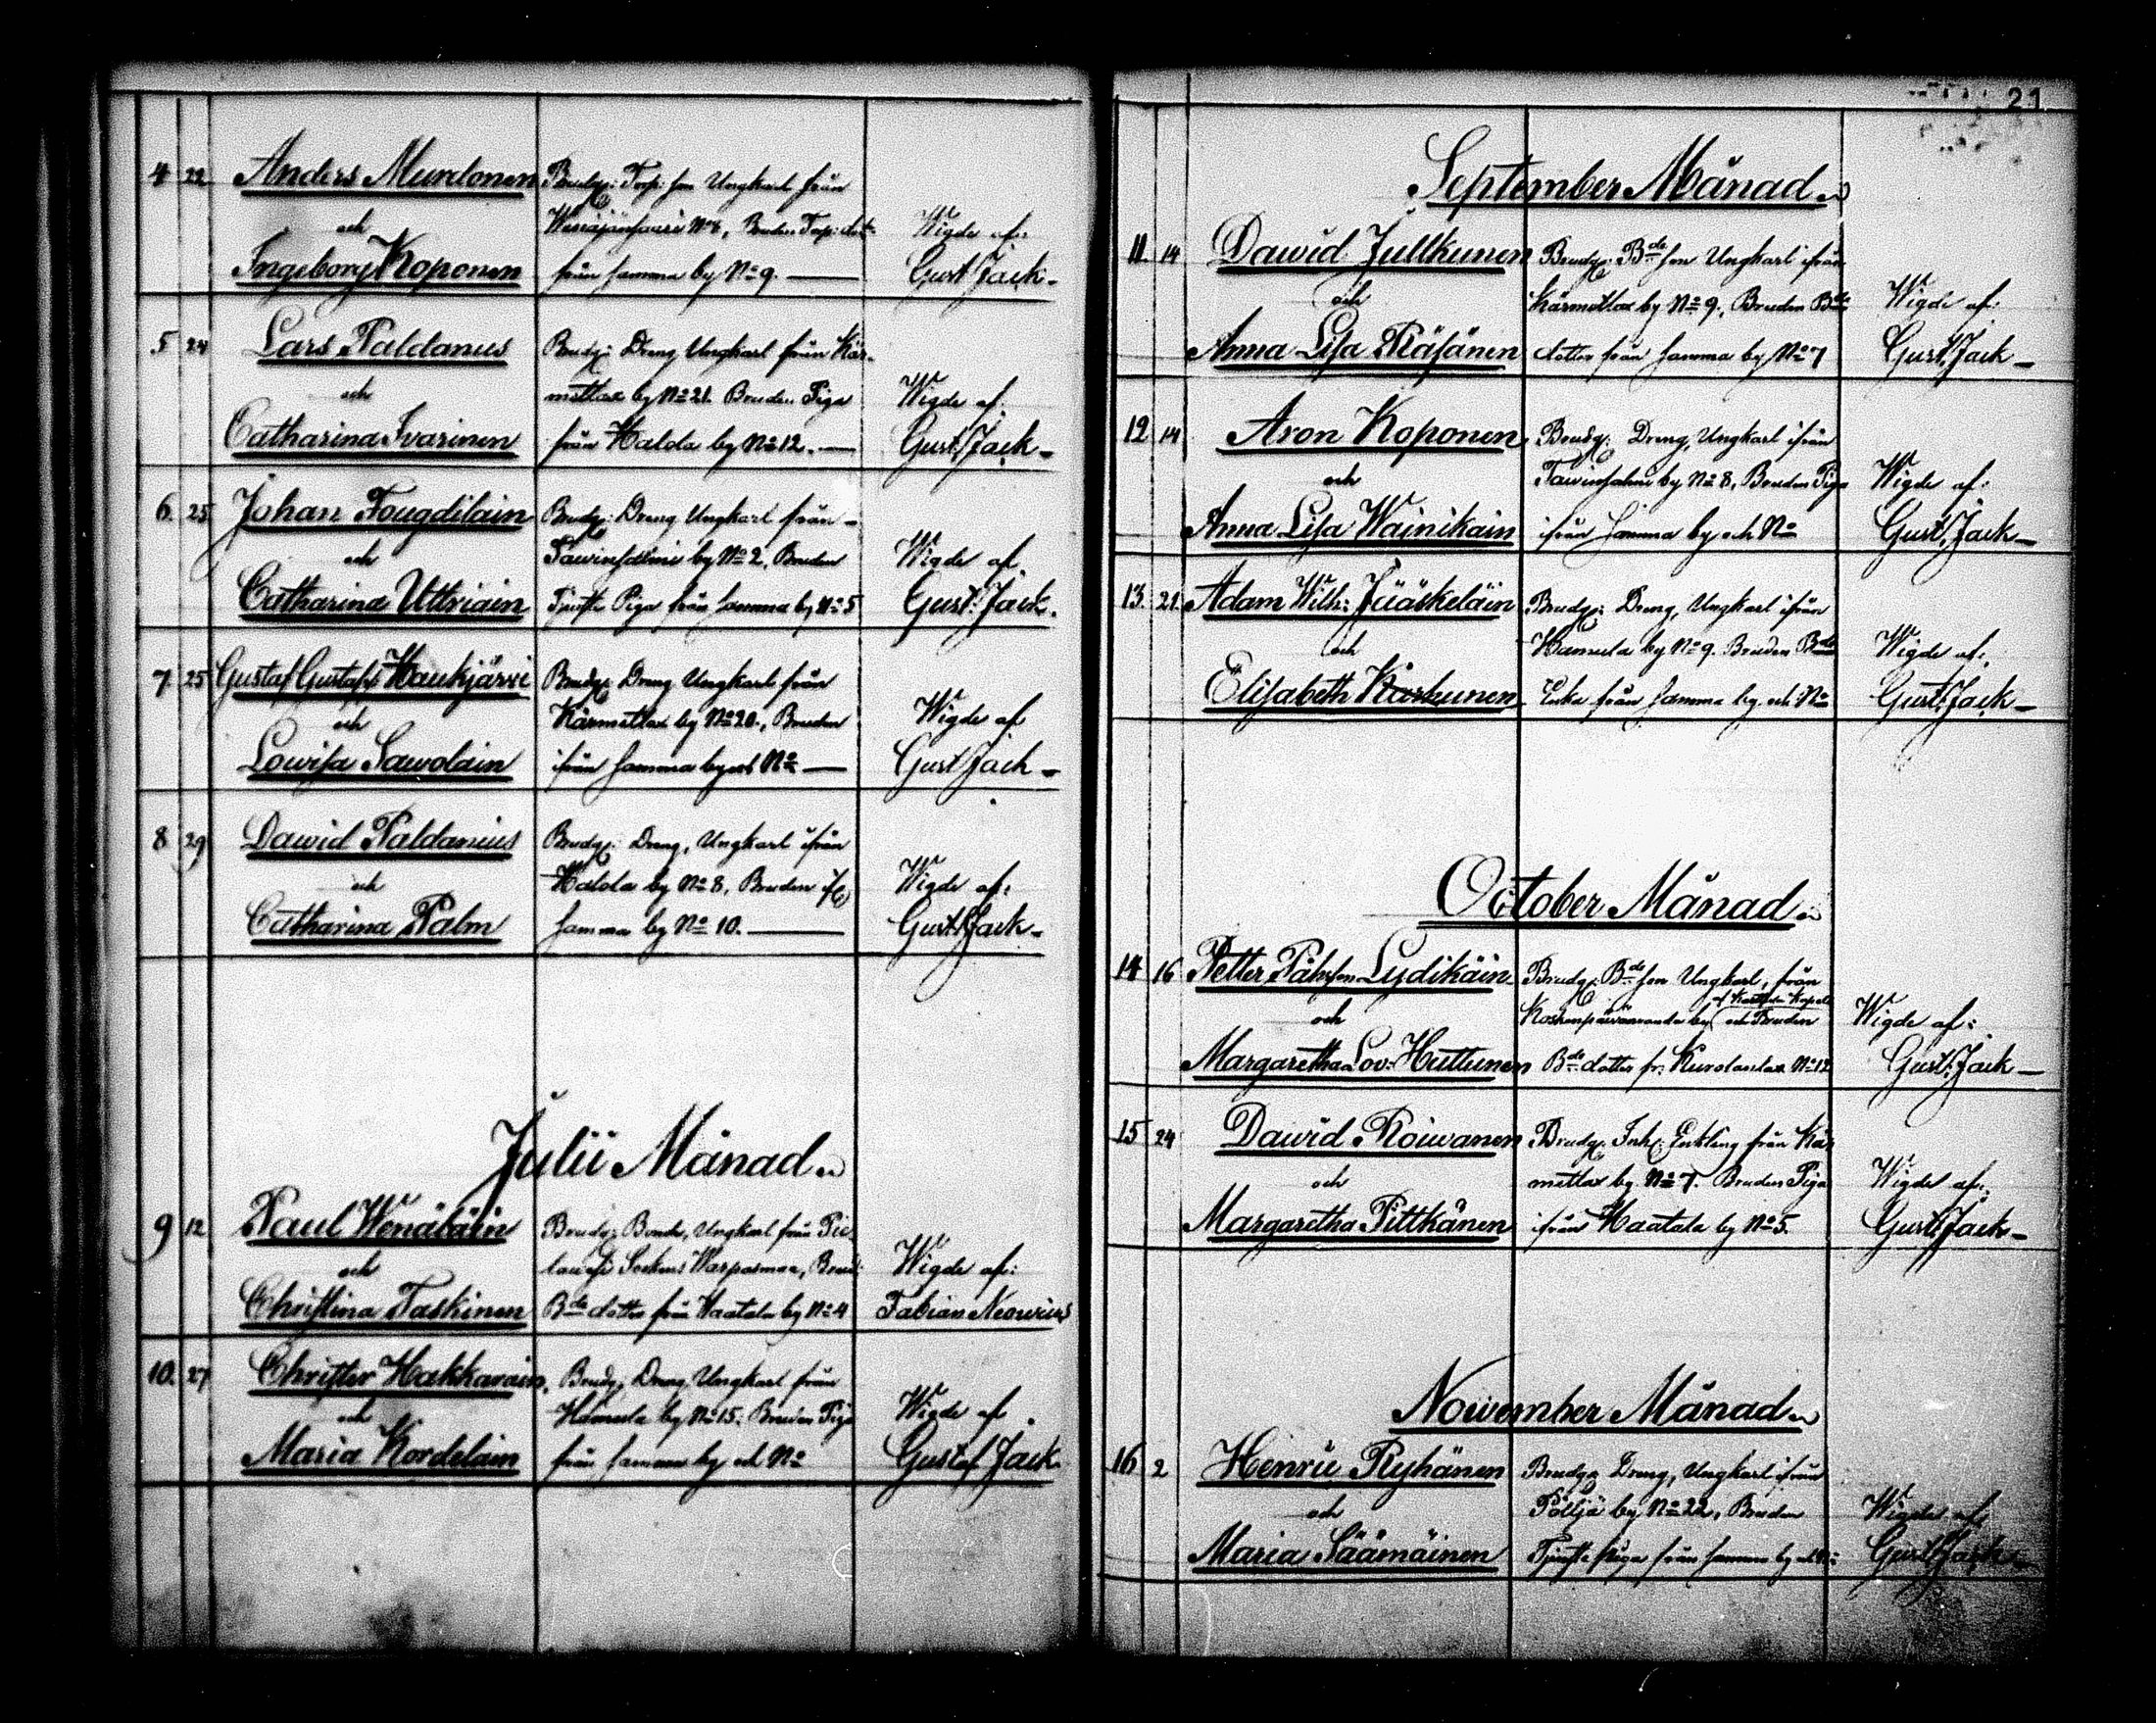 4 22 Anders Murdonen Brudg: Torp: son Ungkarl från
och Wesiäjänsaari No 8, Bruden Torp: dott: Wigde af:
Ingeborg Koponen från samma by No 9. Gust Jack
5 24 Lars Paldanus Brudg: Dreng Ungkarl från Kär-
och mettlax by No 21. Bruden Piga Wigde af.
Catharina Ivarinen från Halola by No 12. Gust: Jack
6. 25 Johan Fougdilain Brudg: Dreng Ungkarl från
och Tawinsalmi by No 2, Bruden Wigde af.
Catharina Uttriain Tjenste Piga från samma by No 5 Gust: Jack.
7 25 Gustaf Gustafs Haukjärvi Brudg: Dreng Ungkarl från
och Kärmettlax by No 20., Bruden Wigde af
Lowisa Sawolain ifrån samma by och No Gust Jack
8 29 Dawid Paldanius Brudg: Dreng, Ungkarl ifrån
och Halola by No 8, Bruden if. Wigde af:
Catharina Palm samma by No 10. Gust: Jack
Julii Månad
9 12 Paul Wenäläin Brudg: Bonde, Ungkarl från Pie-
och lavesi Sockens Warpasmaa, Brud: Wigde af:
Christina Taskinen Bde dotter från Haatala by No 4 Fabian Neovius
10. 27 Christer Hakkarain, Brudg: Dreng Ungkarl från
och Hamula by No 15: Bruden Piga Wigde af
Maria Kordelain från samma by och No Gustaf Jack.
21.
September Månad
11. 14 Dawid Jullkunen Brudg: Bde son Ungkarl ifrån
och Kärmettlax by No 9., Bruden Bde Wigde af:
Anna Lisa Räsänen dotter från samma by No 7 Gust: Jack
12 14 Aron Koponen Brudg: Dreng, Ungkarl ifrån
och Tawinsalmi by No 8, Bruden Piga Wigde af:
Anna Lisa Wainikain ifrån samma by och No Gust: Jack
13. 21. Adam Wilh: Jääskeläin Brudg: Dreng, Ungkarl ifrån
och Hamula by No 9. Bruden Bde Wigde af:
Elisabeth Karhunen Enka från samma by. och No Gust: Jack
October Månad
14 16 Petter Påhlson Lydikäin Brudg: Bde son Ungkarl, från
och Koskenpäivärannta by och Bruden Wigde af:
Margaretha Lov: Huttunen Bde dotter fr: Kurolanlax No 12 Gust: Jack
15 24 Dawid Roiwanen Brudg: Inh: Enkling från Kär-
och mettlax by No 7. Bruden Piga Wigde af:
Margaretha Pittkänen ifrån Haatala by No 5. Gust: Jack
November Månad
16 2 Henric Ryhänen Brudg: Dreng, Ungkarl ifrån
och Pöljä by No 22, Bruden Wigde af
Maria Säämäinen Tjenste piga från samma by och No Gust: Jack